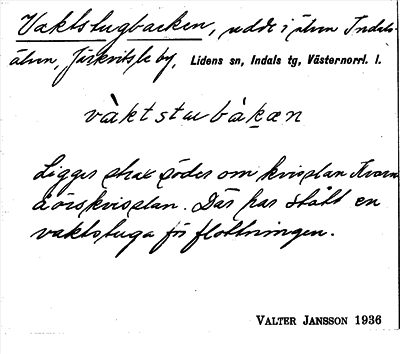 Vaktstugbacken, udde i älven Indals-
älven, Järkvitsle by, Lidens sn, Indals tg, Västernorrl. l.
vàktstuebàkæn
Ligger strax söder om kvislan Kvarn
åörskvislan. Där har stått en
vaktstuga för flottningen.
VALTER JANSSON 1936